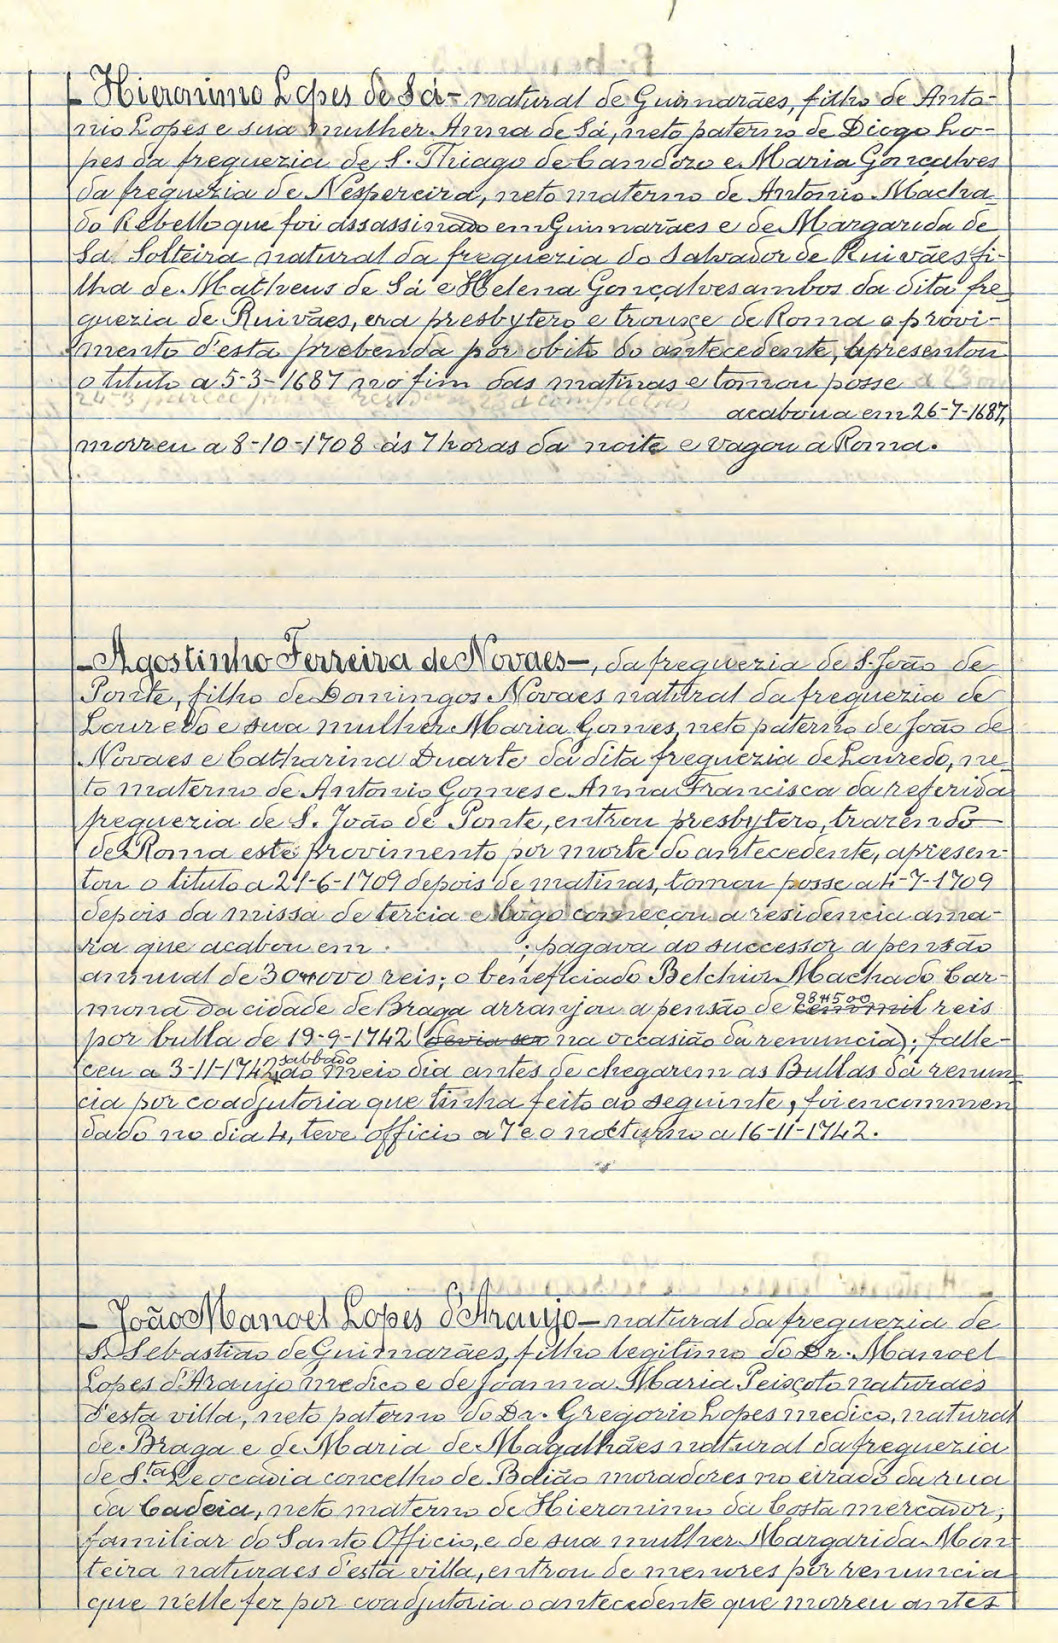 - Hieronimo Lopes de Sá - natural de Guimarães, filho de Anto-
nio Lopes e sua mulher Anna de Sá, neto paterno de Diogo Lo-
pes da freguezia de S. Thiago de Candozo e Maria Gonçalves
da freguezia de Nespereira, neto materno de Antonio Macha-
do Rebello que foi assassinado em Guimarães e de Margarida de
Sá Solteira natural da freguezia do Salvador de Ruivães fi-
lha de Matheus de Sá e Helena Gonçalves ambos da dita fre-
guezia de Ruivães, era presbytero e trouxe de Roma o provi-
mento d'esta prebenda por obito do antecedente, apresentou
o titulo a 5-3-1687 no fim das matinas e tomou posse a 23 ou
24-3
acabou a em 26-7-1687,
morreu a 8-10-1708 ás 7 horas da noite e vagou a Roma.
- Agostinho Ferreira de Novaes -, da freguezia de S. João de
Ponte, filho de Domingos Novaes natural da freguezia de
Louredo e sua mulher Maria Gomes, neto paterno de João de
Novaes e Catharina Duarte da dita freguezia de Louredo, ne-
to materno de Antonio Gomes e Anna Francisca da referida
freguezia de S. João de Ponte, entrou presbytero, trazendo
de Roma este provimento por morte do antecedente, apresen-
tou o titulo a 21-6-1709 depois de matinas, tomou posse a 4-7-1709
depois da missa de tercia e logo começou a residencia ama-
ria que acabou em . ; pagava ao successor a pensão
annual de 30$000 reis; o beneficiado Belchior Machado Car-
mona da cidade de Braga arranjou a pensão de cem mil 98$500 reis
por bulla de 19-9-1742 (devia ser na occasião da renuncia); falle-
ceu a 3-11-1742 sabbado ao meio dia antes de chegarem as Bullas da renun-
cia por coadjutoria que tinha feito ao seguinte, foi encommen
dado no dia 4, teve officio a 7 e o nocturno a 16-11-1742.
- João Manoel Lopes d'Araujo - natural da freguezia de
S. Sebastião de Guimarães, filho legitimo do Dr. Manoel
Lopes d'Araujo medico e de Joanna Maria Peixoto naturaes
d'esta villa, neto paterno do Dr. Gregorio Lopes medico, natural
de Braga e de Maria de Magalhães natural da freguezia
de S.ta Leocadia concelho de Baião moradores no eirado da rua
da Cadeia, neto materno de Hieronimo da Costa mercador,
familiar do Santo Officio, e de sua mulher Margarida Mon-
teira naturaes d'esta villa, entrou de menores por renuncia
que n'elle fez por coadjutoria o antecedente que morreu antes